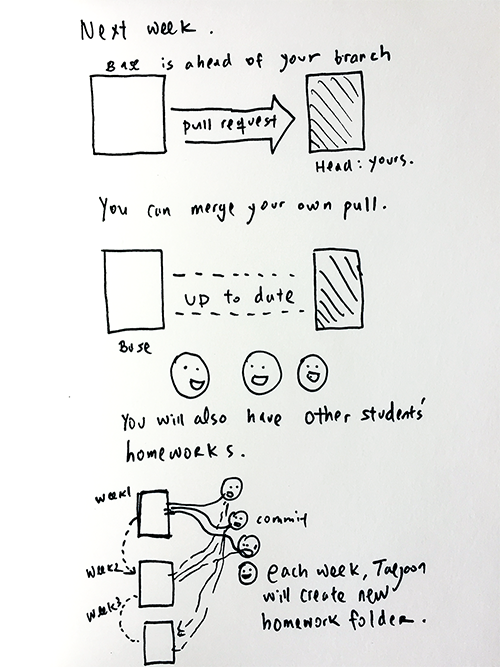 Next week.
Base is ahead of your branch
pull request
Head: yours.
You can merge your own pull.
up to date
Base
You will also have other students'
homeworks.
week1
commit
week2
each week, Taejoon
week3
will create new
homework folder.